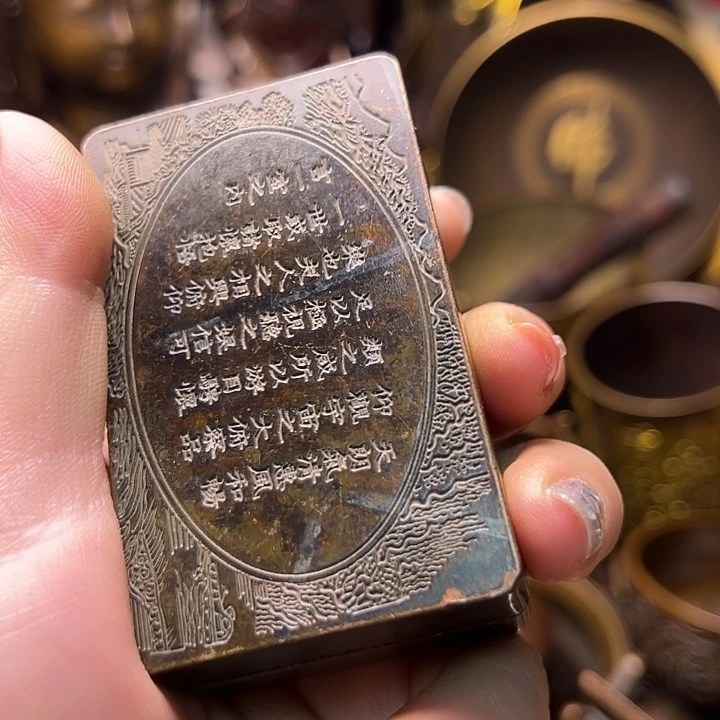 天朗氣清惠風和暢
仰觀宇宙之大俯察品
類之盛所以游目騁懷
足以極視聽之娛信可
樂也夫人之相與俯仰
一世或取諸懷抱悟
言一室之內